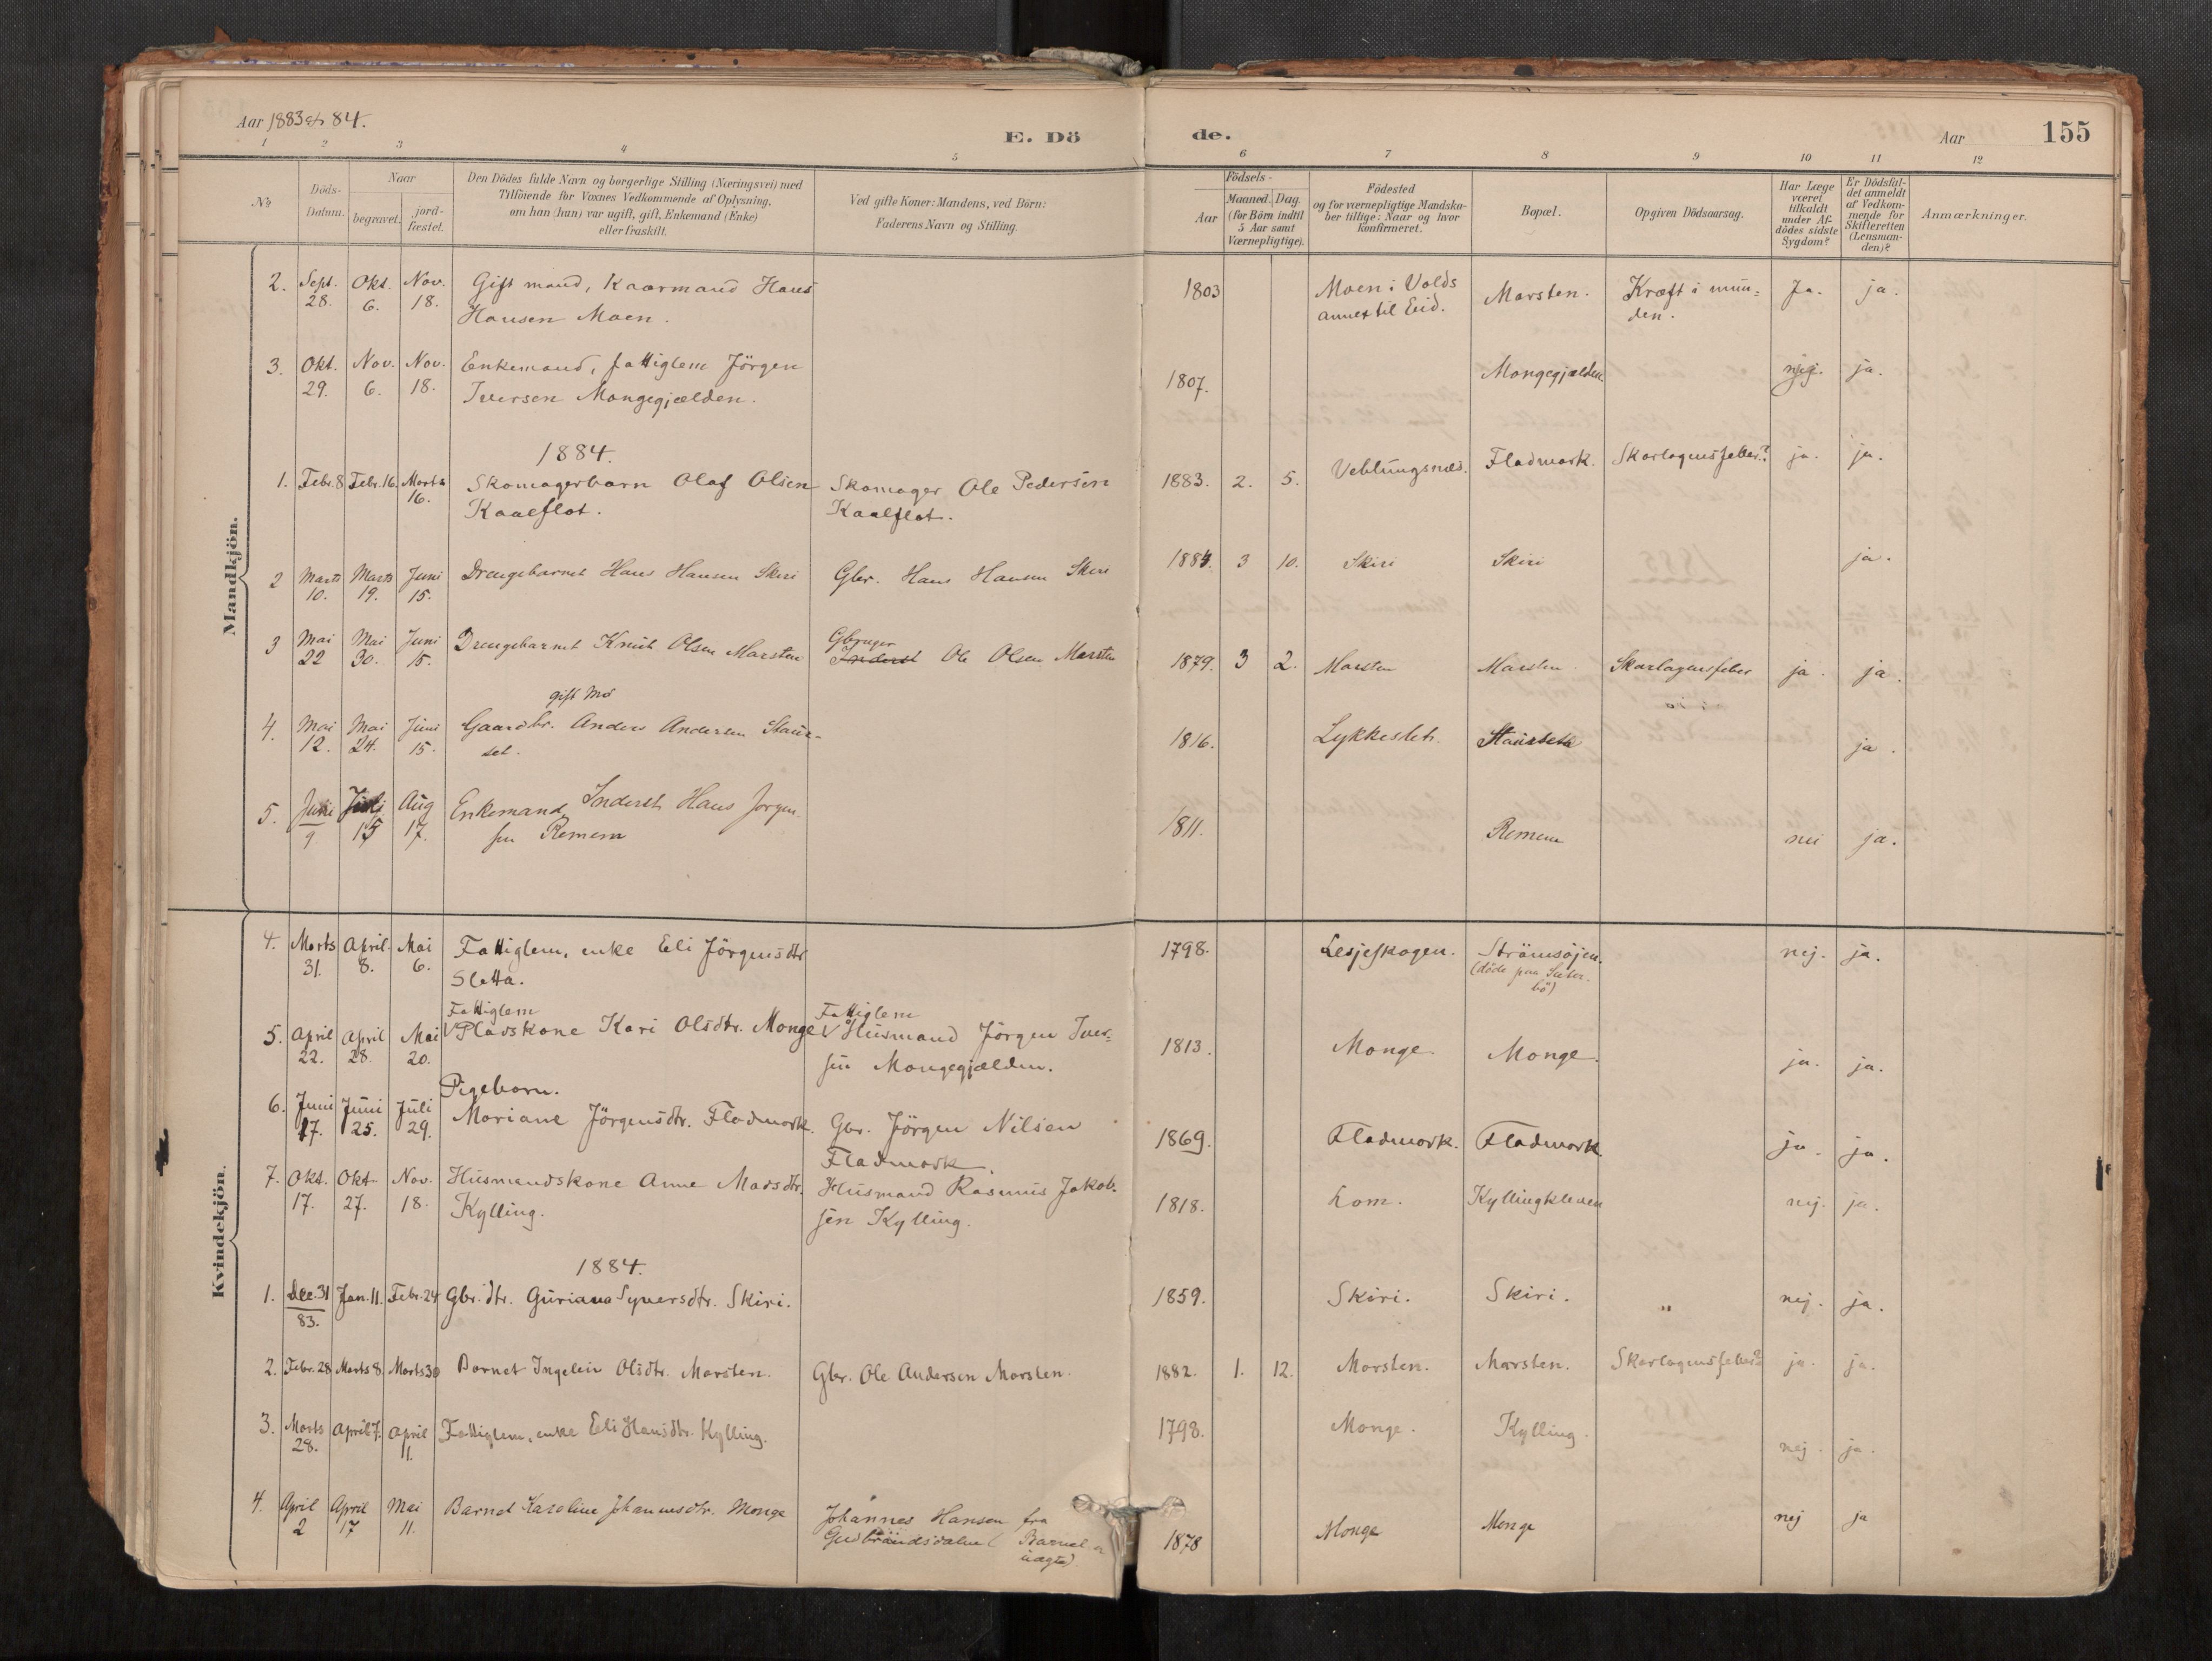 Aar 1883 & 84.
E. Döde.
Aar
155
1 2 3 4 5 6 7 8 9 10 11 12
No
Döds-Datum.
Naar
begravet.
jord-fæstet.
Den Dödes fulde Navn og borgerlige Stilling (Næringsvei) med
Tilföiende for Voxnes Vedkommende af Oplysning,
om han (hun) var ugift, gift, Enkemand (Enke)
eller fraskilt.
Ved gifte Koner: Mandens, ved Börn:
Faderens Navn og Stilling.
Födsels-
Aar
Maaned. Dag.
(for Börn indtil
5 Aar samt
Værnepligtige).
Födested
og for værnepligtige Mandska-
ber tillige: Naar og hvor
konfirmeret.
Bopæl.
Opgiven Dödsaarsag.
Har Læge
været
tilkaldt
under Af-
dödes sidste
Sygdom?
Er Dödsfal-
det anmeldt
af Vedkom-
mende for
Skifteretten
(Lensman-
den)?
Anmærkninger.
Mandkjön.
2. Sept. 28. Okt. 6. Nov. 18. Gift mand, Kaarmand Hans
Hansen Moen. 1803 Moen i Volds
annex til Eid. Marsten. Kræft i mun-
den. Ja. ja.
3. Okt. 29. Nov. 6. Nov. 18. Enkemand, fattiglem Jörgen
Iversen Mongegjælden. 1807. Mongegjælden. nej. ja.
1884.
1. Febr. 8 Febr. 16. Marts 16. Skomagerbarn Olaf Olsen
Kaalflot. Skomager Ole Pedersen
Kaalflot. 1883. 2. 5. Veblungsnæs. Fladmark. Skarlagensfeber? ja. ja.
2 Marts 10. Marts 19. Juni 15. Drengebarnet Hans Hansen Skiri Gbr. Hans Hansen Skiri 1884. 3 10. Skiri Skiri ja.
3 Mai 22 Mai 30. Juni 15. Drengebarnet Knut Olsen Marsten Gbruger
Inderst Ole Olsen Marsten 1879. 3 2. Marsten Marsten Skarlagensfeber ja. ja.
gift md
4. Mai 12. Mai 24. Juni 15. Gaardbr. Anders Andersen Staur-
set. 1816. Lykkeslet. ja.
5. Juni 9 Juli 15 Aug 17. Enkemand Inderst Hans Jorgen
sen Remem 1811. Remem nei ja.
Kvindekjön.
4. Marts 31. April 8. Mai 6. Fattiglem, enke Eli Jörgensdtr
Sletta. 1798. Lesjeskogen. Strömsöjen.
(döde paa Sæter-
bö) nej. ja.
Fattiglem Fattiglem
5. April 22. April 28. Mai 20. Pladskone Kari Olsdtr. Monge Husmand Jörgen Iver-
sen Mongegjælden. 1813. Monge. Monge. ja. ja.
Pigebarn.
6. Juni 17. Juni 25. Juli 29. Mariane Jörgensdtr. Fladmark. Gbr. Jörgen Nilsen
Fladmark. 1869. Fladmark. Fladmark ja. ja.
7. Okt. 17. Okt. 27. Nov. 18. Husmandskone Anne Madsdtr.
Kylling. Husmand Rasmus Jakob-
sen Kylling. 1818. Lom. Kyllingkleven nej. ja.
1884.
1. Dec. 31 83. Jan. 11. Febr. 24 Gbr. dtr. Guriana Syversdtr. Skiri. 1859. Skiri. Skiri. " nej. ja.
2. Febr. 28 Marts 8. Marts 30 Barnet Ingelein Olsdtr. Marsten. Gbr. Ole Andersen Marsten. 1882. 1. 12. Marsten. Marsten. Skarlagensfeber? ja. ja.
3. Marts 28. April 7. April 11. Fattiglem, enke Eli Hansdtr. Kylling. 1798. Monge. Kylling. nej. ja.
4. April 2 April 17 Mai 11. Barnet Karoline Johannesdtr. Monge Johannes Hansen fra
Gudbrandsdalen (Barnet er
uægte). 1878 Monge Monge nej ja